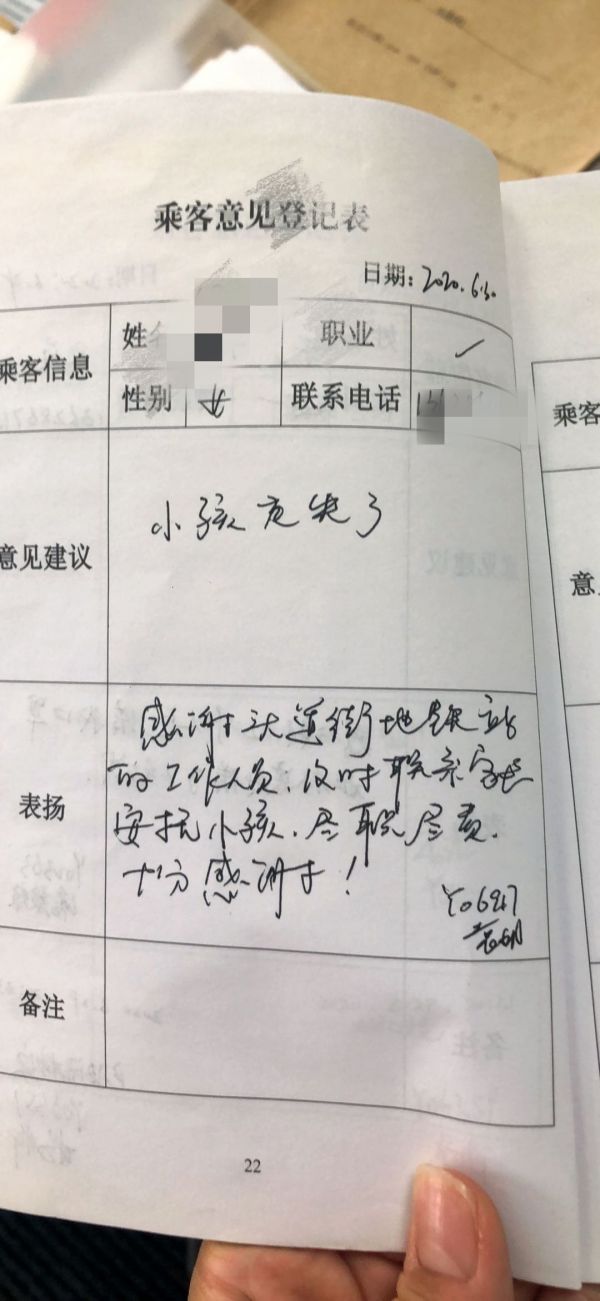 乘客意见登记表
日期：2020.6.30
乘客信息
姓
职业
性别 女
联系电话
意见建议
小孩走失了
表扬
感谢头道街地铁站
的工作人员、及时联系家长
安抚小孩、尽职尽责、
十分感谢！
备注
22
乘客
意